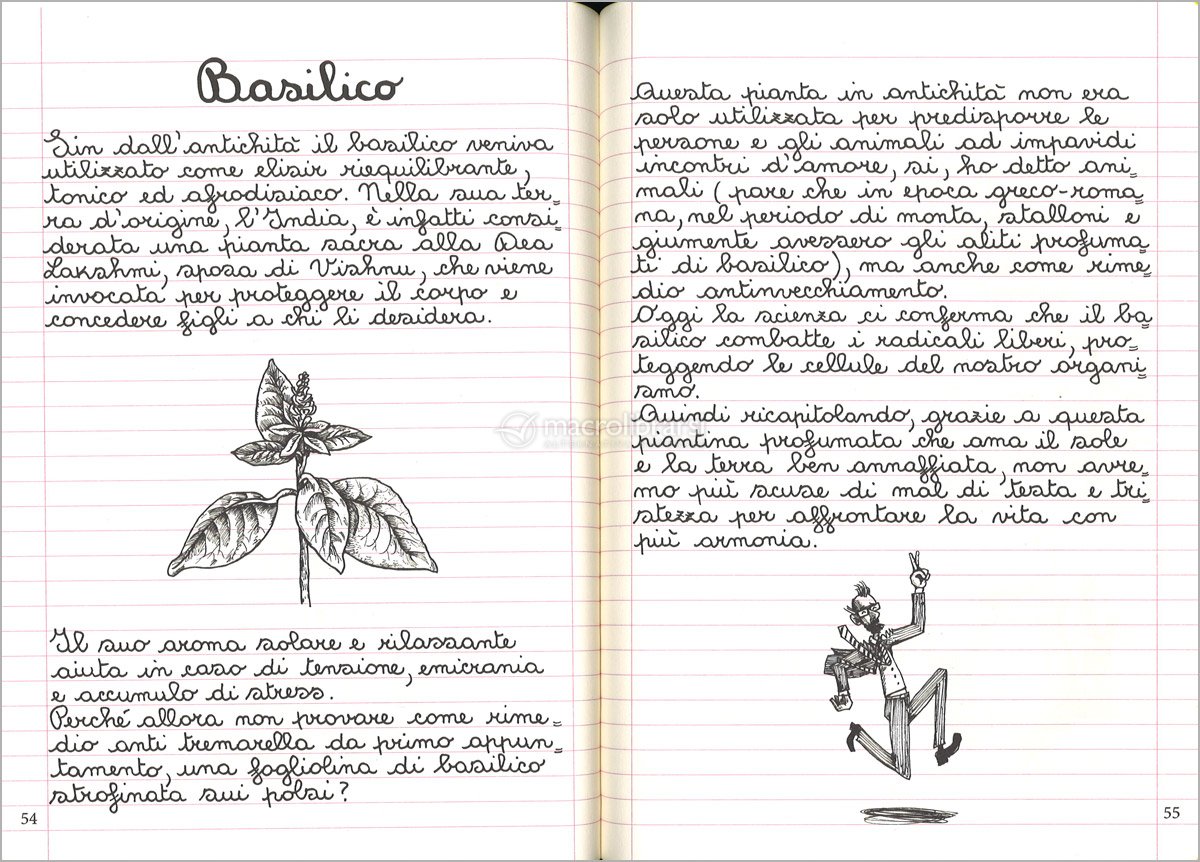 Basilico
Sin dall'antichità il basilico veniva
utilizzato come elisir riequilibrante,
tonico ed afrodisiaco. Nella sua ter=
ra d'origine, l'India, è infatti consi=
derata una pianta sacra alla Dea
Lakshmi, sposa di Vishnu, che viene
invocata per proteggere il corpo e
concedere figli a chi li desidera.
Il suo aroma solare e rilassante
aiuta in caso di tensione, emicrania
e accumulo di stress.
Perché allora non provare come rime=
dio anti tremarella da primo appun=
tamento, una fogliolina di basilico
strofinata sui polsi?
54
Questa pianta in antichità non era
solo utilizzata per predisporre le
persone e gli animali ad impavidi
incontri d'amore, si, ho detto ani=
mali (pare che in epoca greco-roma=
na, nel periodo di monta, stalloni e
giumente avessero gli aliti profuma=
ti di basilico), ma anche come rime=
dio antinvecchiamento.
Oggi la scienza ci conferma che il ba=
silico combatte i radicali liberi, pro=
teggendo le cellule del nostro organi=
smo.
Quindi ricapitolando, grazie a questa
piantina profumata che ama il sole
e la terra ben annaffiata, non avre=
mo più scuse di mal di testa e tri=
stezza per affrontare la vita con
più armonia.
55
macrolibrarsi